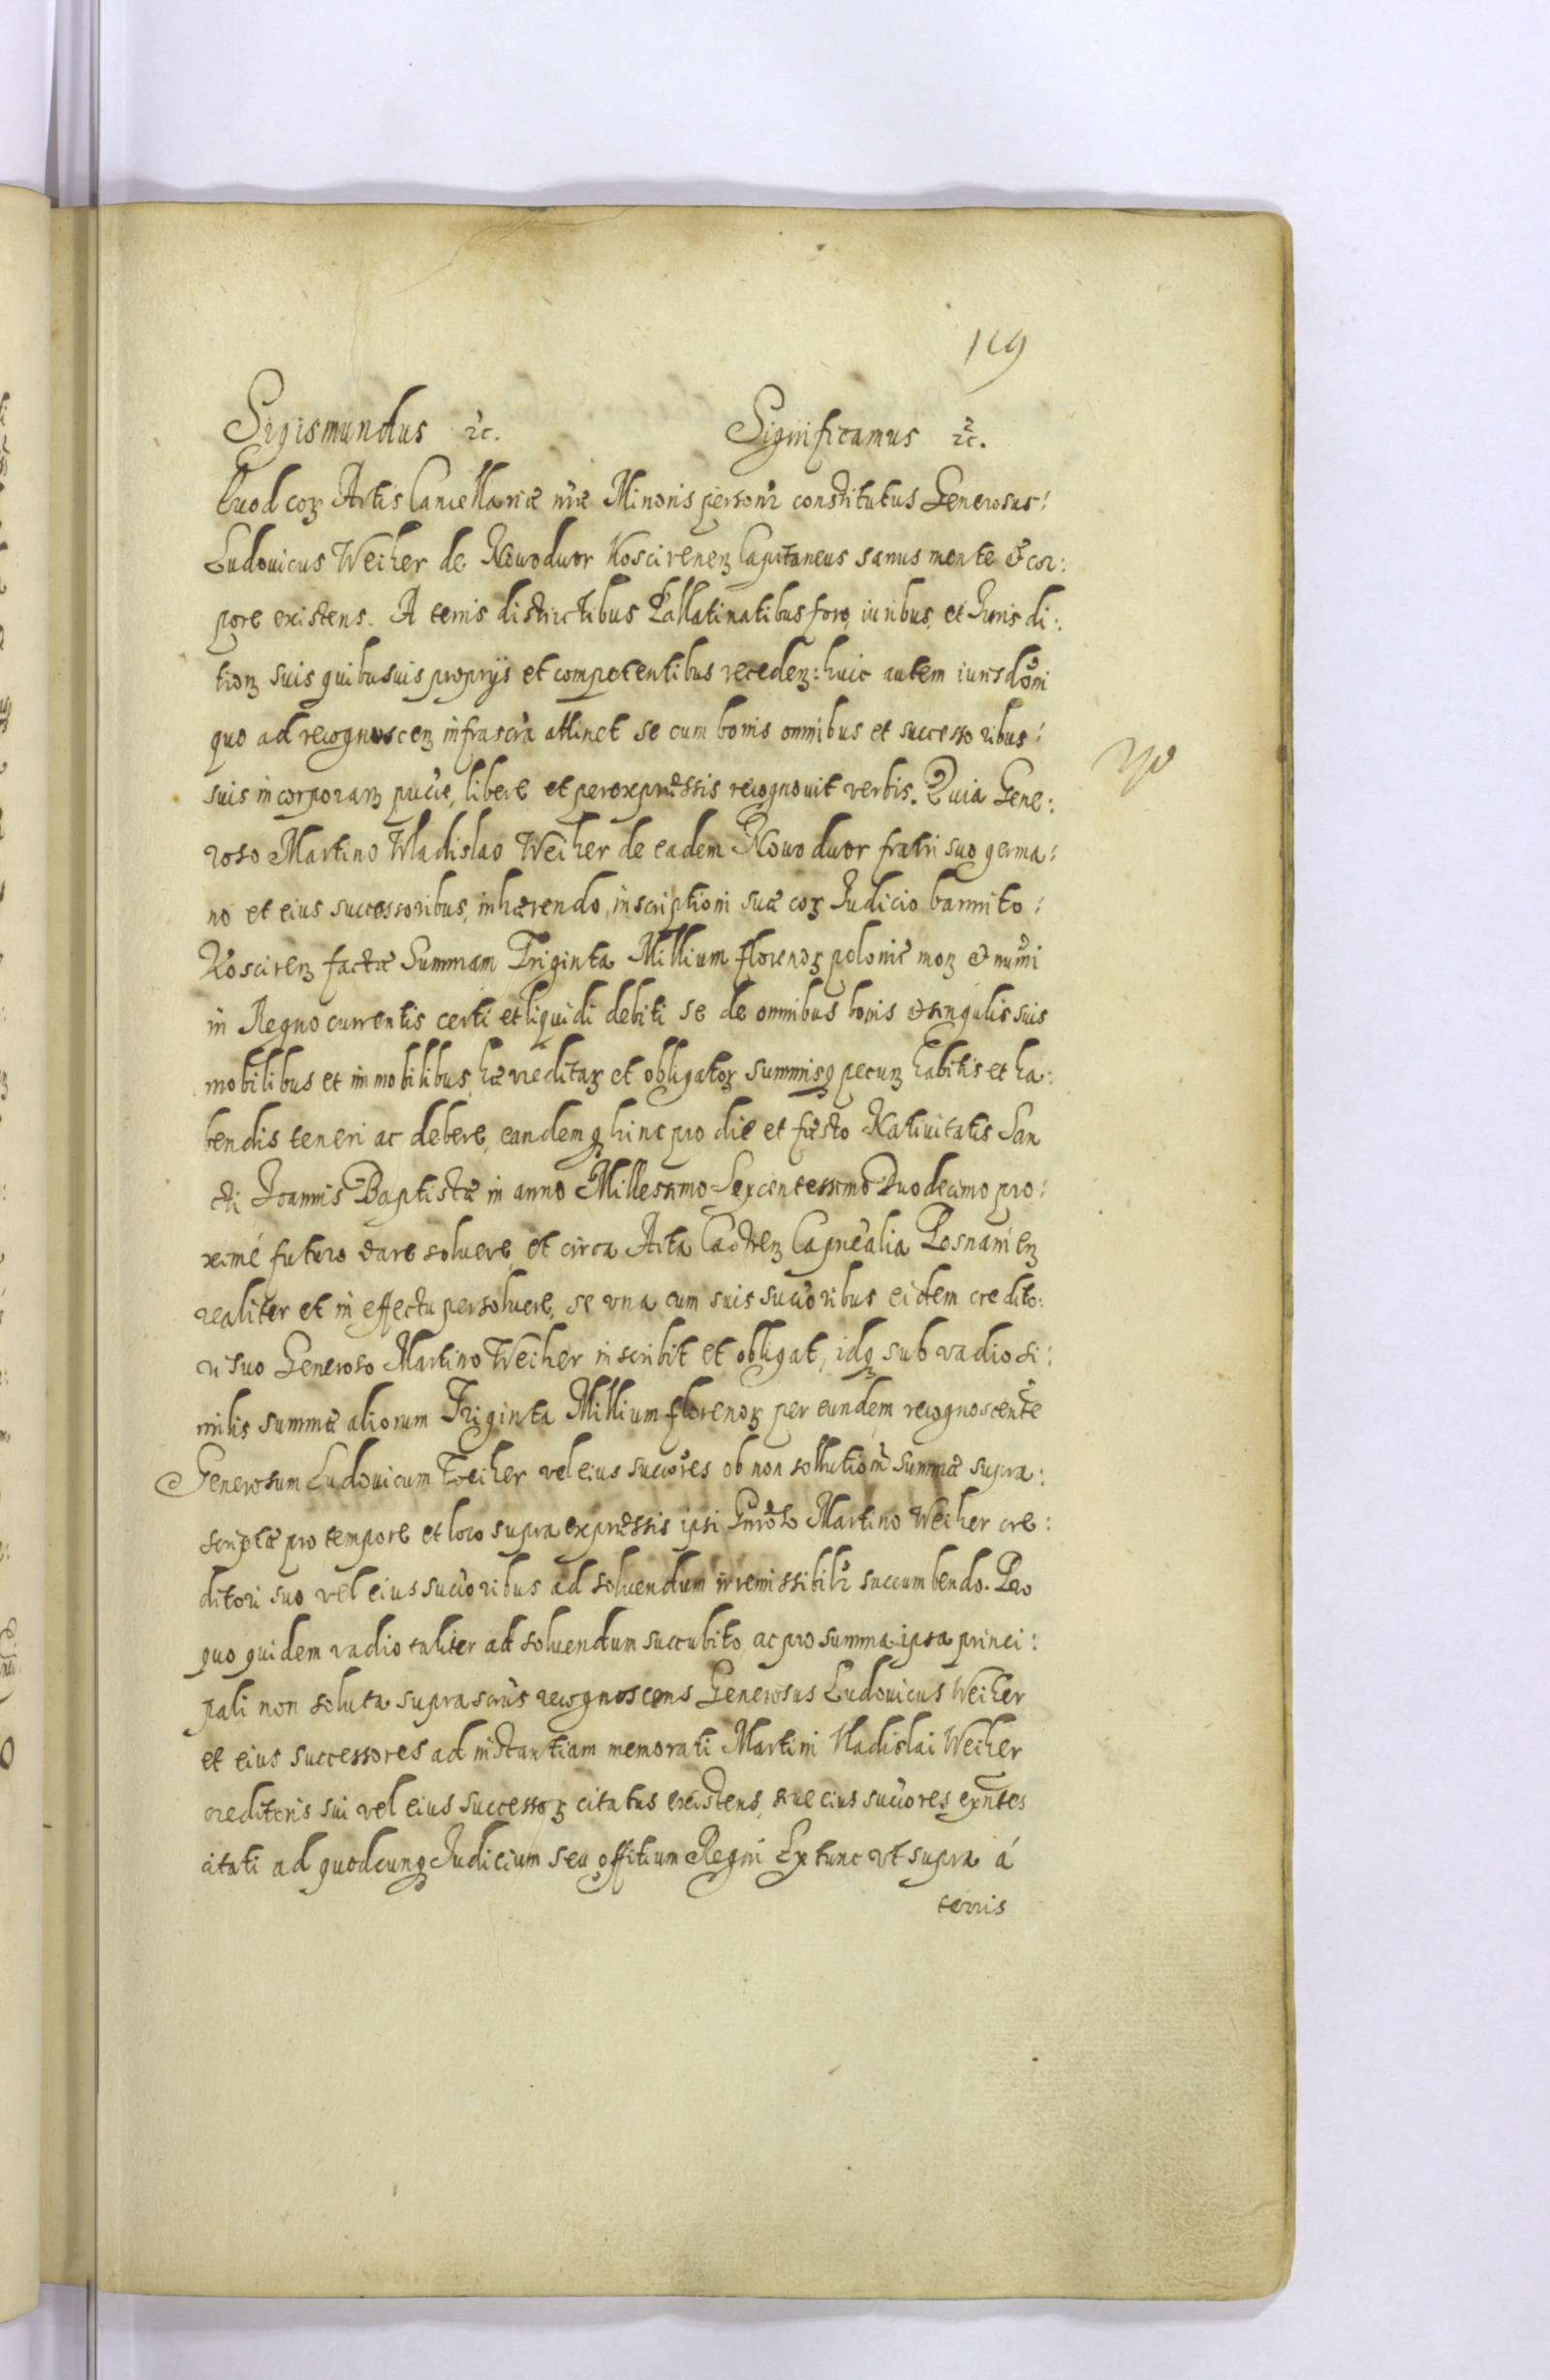 119
Sigismundus ꝛc. Significamus ꝛc.
Quod coꝝ Actis Cancellariæ nr̃æ Minoris personlr̃ constitutus Generosus:
Ludouicus Weiher de Nowodwor Koscirenẽꝫ Capitaneus sanus mente & cor:
pore existens. A terris districtibus Pallatinatibus foro, iuribus, et Juris di:
tioꝫ suis quibusuis proprijs et competentibus recedeꝫ: huic autem iurisdõni
quo ad recognosceꝫ infrascrã attinet se cum bonis omnibus et successoribus:
suis incorporaꝫ pu͠ce, libere et per expressis recognouit verbis. Quia Gene:
roso Martino Wladislao Weiher de eadem Nowodwor fratri suo germa:
no et eius successoribus, inhærendo, inscriptioni suæ coꝝ Judicio bannito:
Koscireꝫ factæ Summam Triginta Millium florenoꝝ polonie moꝫ & nũmi
in Regno currentis certi et liquidi debiti se de omnibus bonis & singulis suis
mobilibus et immobilibus, hæreditaꝫ et obligatoꝫ summisqꝫ pecuꝫ habitis et ha:
bendis teneri ac debere, eandemqꝫ hinc pro die et fæsto Natiuitatis San
cti Joannis Baptistæ in anno Millesimo Sexcentessimo Duodecimo pro:
ximé futuro dare soluere, et circa Acta Castreꝫ Capnealia Posnanieꝫ
realiter et in effectu persoluere, se vna cum suis succ̃oribus eidem credito:
ri suo Generoso Martino Weiher inscribit et obligat, idqꝫ sub vadio si:
milis summæ aliorum Triginta Millium florenoꝝ per eundem recognoscente͂
Generosum Ludouicum Weiher vel eius succ̃ores ob non sollutionẽ summæ supra:
scriptæ pro tempore et loco supra expressis ipsi Gnrõso Martino Weiher cre:
ditori suo vel eius succ̃oribus ad soluendum irremissibilr̃ succumbendo. Pro
quo quidem vadio taliter ad soluendum succubito, ac pro summa ipsa princi:
pali non soluta suprascrũs recognoscens Generosus Ludouicus Weiher
et eius successores ad instantiam memorati Martini Vladislai Weiher
creditoris sui vel eius successoꝝ citatus existens, siue eius succ̃ores exñtes
citati ad quodcunqꝫ Judicium seu offitium Regni Extunc vt supra á
terris